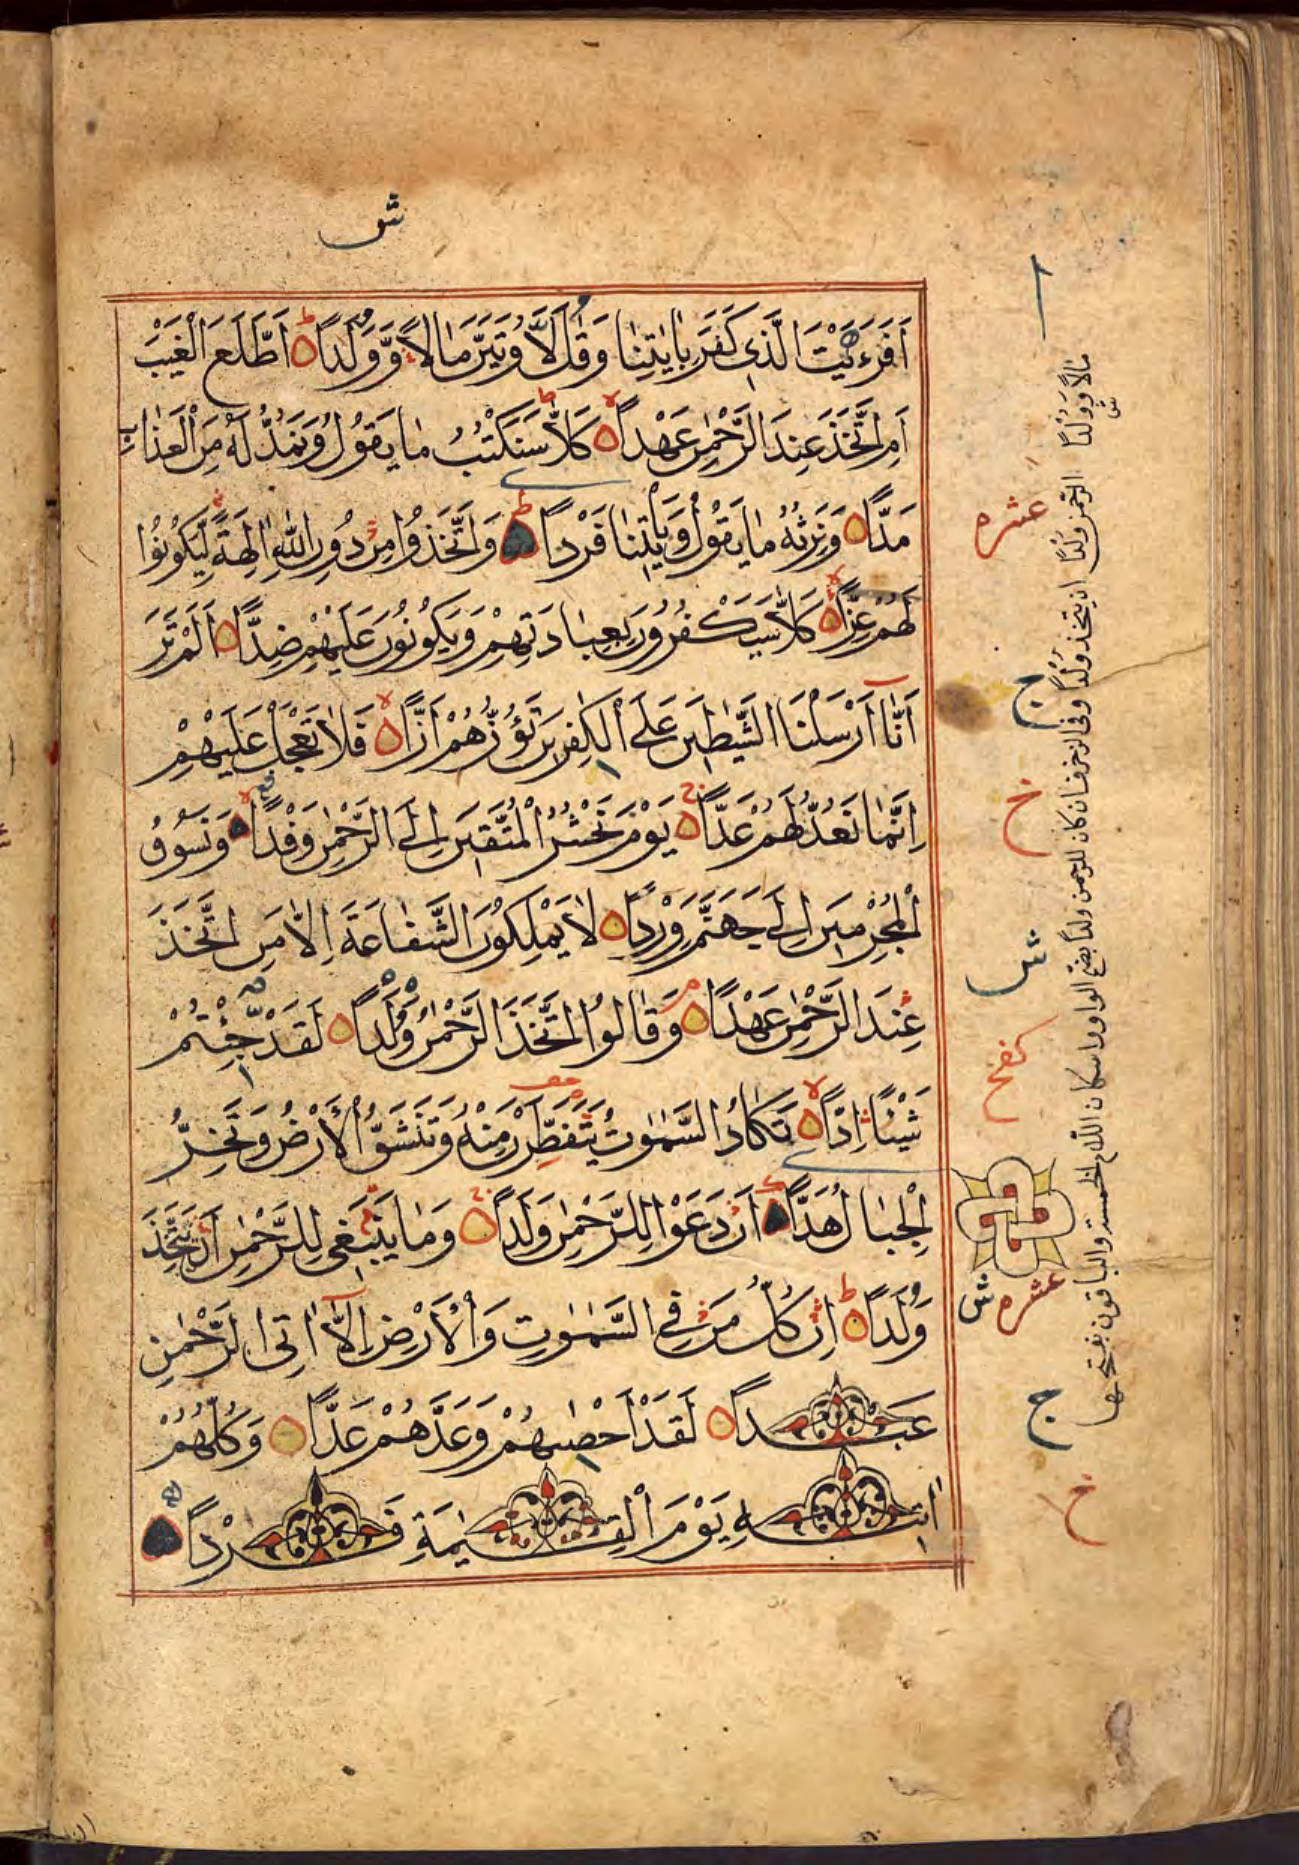 ش
أَفَرَءَيْتَ الَّذِى كَفَرَ بِاٰيٰتِنَا وَقَالَ لَأُوتَيَنَّ مَالًا وَّوَلَدًا اَطَّلَعَ الْغَيْبَ
اَمِ اتَّخَذَ عِنْدَ الرَّحْمٰنِ عَهْدًا كَلَّا سَنَكْتُبُ مَا يَقُولُ وَنَمُدُّ لَهُ مِنَ الْعَذَابِ
مَدًّا وَنَرِثُهُ مَا يَقُولُ وَيَأْتِينَا فَرْدًا وَاتَّخَذُوا مِنْ دُونِ اللّٰهِ اٰلِهَةً لِيَكُونُوا
لَهُمْ عِزًّا كَلَّا سَيَكْفُرُونَ بِعِبَادَتِهِمْ وَيَكُونُونَ عَلَيْهِمْ ضِدًّا اَلَمْ تَرَ
اَنَّا اَرْسَلْنَا الشَّيٰطِينَ عَلَى الْكٰفِرِينَ تَؤُزُّهُمْ اَزًّا فَلَا تَعْجَلْ عَلَيْهِمْ
اِنَّمَا نَعُدُّ لَهُمْ عَدًّا يَوْمَ نَحْشُرُ الْمُتَّقِينَ اِلَى الرَّحْمٰنِ وَفْدًا وَنَسُوقُ
الْمُجْرِمِينَ اِلٰى جَهَنَّمَ وِرْدًا لَا يَمْلِكُونَ الشَّفَاعَةَ اِلَّا مَنِ اتَّخَذَ
عِنْدَ الرَّحْمٰنِ عَهْدًا وَقَالُوا اتَّخَذَ الرَّحْمٰنُ وَلَدًا لَقَدْ جِئْتُمْ
شَيْئًا اِدًّا تَكَادُ السَّمٰوٰتُ يَتَفَطَّرْنَ مِنْهُ وَتَنْشَقُّ الْاَرْضُ وَتَخِرُّ
الْجِبَالُ هَدًّا اَنْ دَعَوْا لِلرَّحْمٰنِ وَلَدًا وَمَا يَنْبَغِى لِلرَّحْمٰنِ اَنْ يَتَّخِذَ
وَلَدًا اِنْ كُلُّ مَنْ فِى السَّمٰوٰتِ وَالْاَرْضِ اِلَّا اٰتِى الرَّحْمٰنِ
عَبْدًا لَقَدْ اَحْصٰيهُمْ وَعَدَّهُمْ عَدًّا وَكُلُّهُمْ
اٰتِيهِ يَوْمَ الْقِيٰمَةِ فَرْدًا
عشره
ج
خ
ش
كفخ
عشره
ش
ج
خ
مالا وولدا الرحمن ولدا ان يتخذ ولدا وفى الزخرف ان كان للرحمن ولد بضم الواو واسكان اللام والباقون بفتحهما